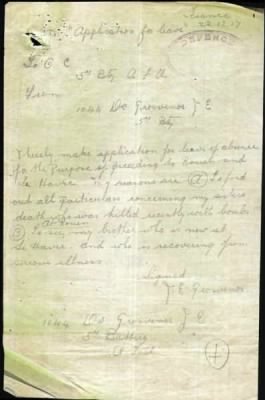 France
22.12.17
Application for leave
To O C
5th Bty A F A
From
1044 Dr Grosvenor J E
5th Bty
I hereby make application for leave of absence
for the Purpose of proceeding to Rouen and
Le Havre. My reasons are (A) To find
out all particulars concerning my sisters
death who was killed recently with bombs
At Rouen
(B) To see my brother who is now at
Le Havre. and who is recovering from
serious illness.
Signed
J. E. Grosvenor
1044 Dr Grosvenor J E
5th Battery